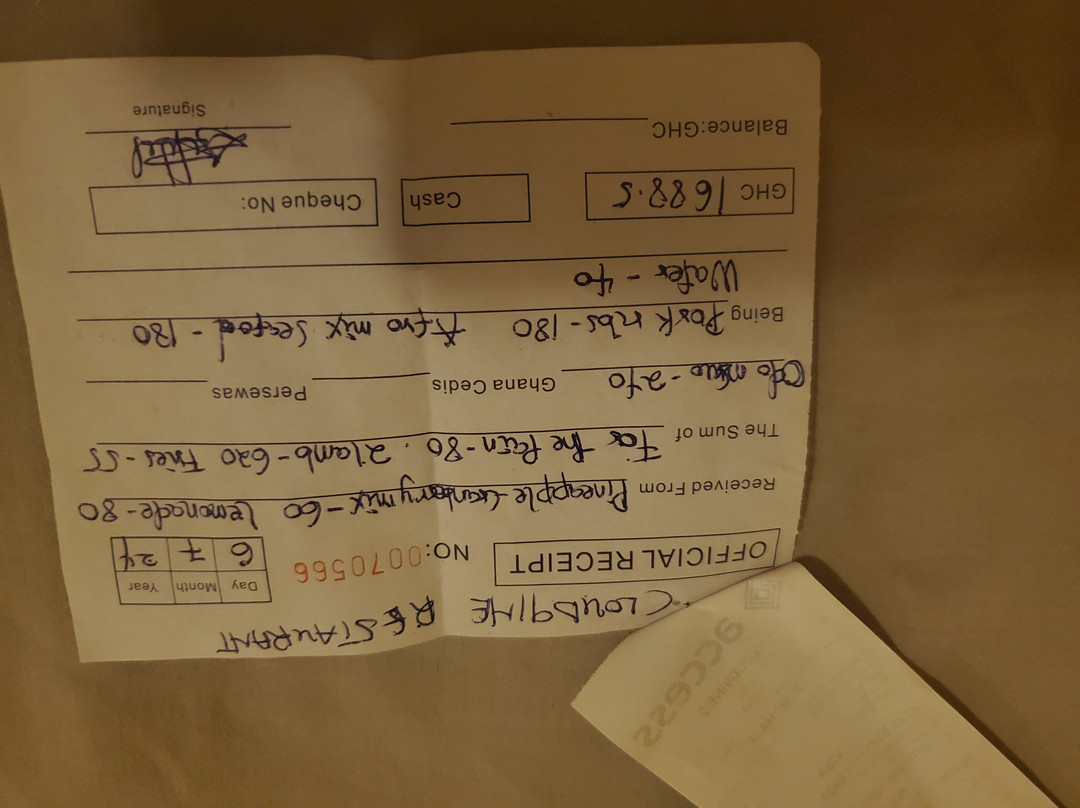 CLOUD9INE RESTAURANT
OFFICIAL RECEIPT NO: 0070566
Day Month Year
6 7 24
Received From Pineapple-cranberry mix - 60 lemonade - 80
The Sum of For the Pain - 80. 2 lamb - 620 Fries - 55
- 240 Ghana Cedis Persewas
Being Pork ribs - 180 Afro mix Seafood - 180
Water - 40
GHC 1688.5 Cash Cheque No:
Balance: GHC
Signature
access